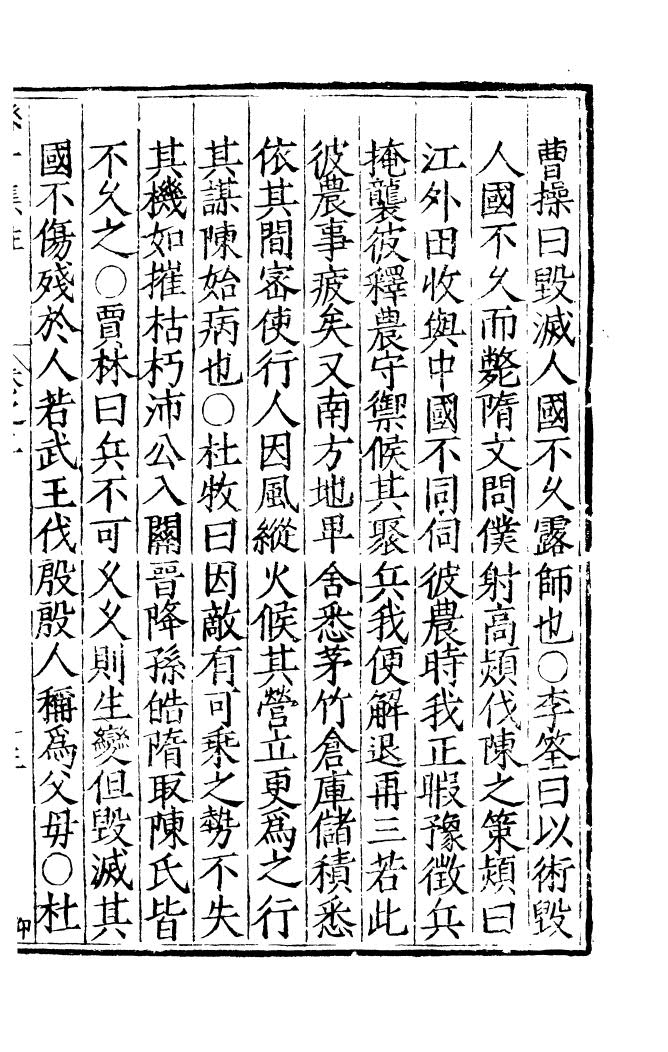 曹操曰毀滅人國不久露師也○李筌曰以術毀
人國不久而斃隋文問僕射高熲伐陳之策熲曰
江外田收與中國不同伺彼農時我正暇豫徵兵
掩襲彼釋農守禦候其聚兵我便解退再三若此
彼農事疲矣又南方地卑舍悉茅竹倉庫儲積悉
依其間密使行人因風縱火候其營立更爲之行
其謀陳始病也○杜牧曰因敵有可乘之勢不失
其機如摧枯朽沛公入關晉降孫皓隋取陳氏皆
不久之○賈林曰兵不可久久則生變但毀滅其
國不傷殘於人若武王伐殷殷人稱爲父母○杜